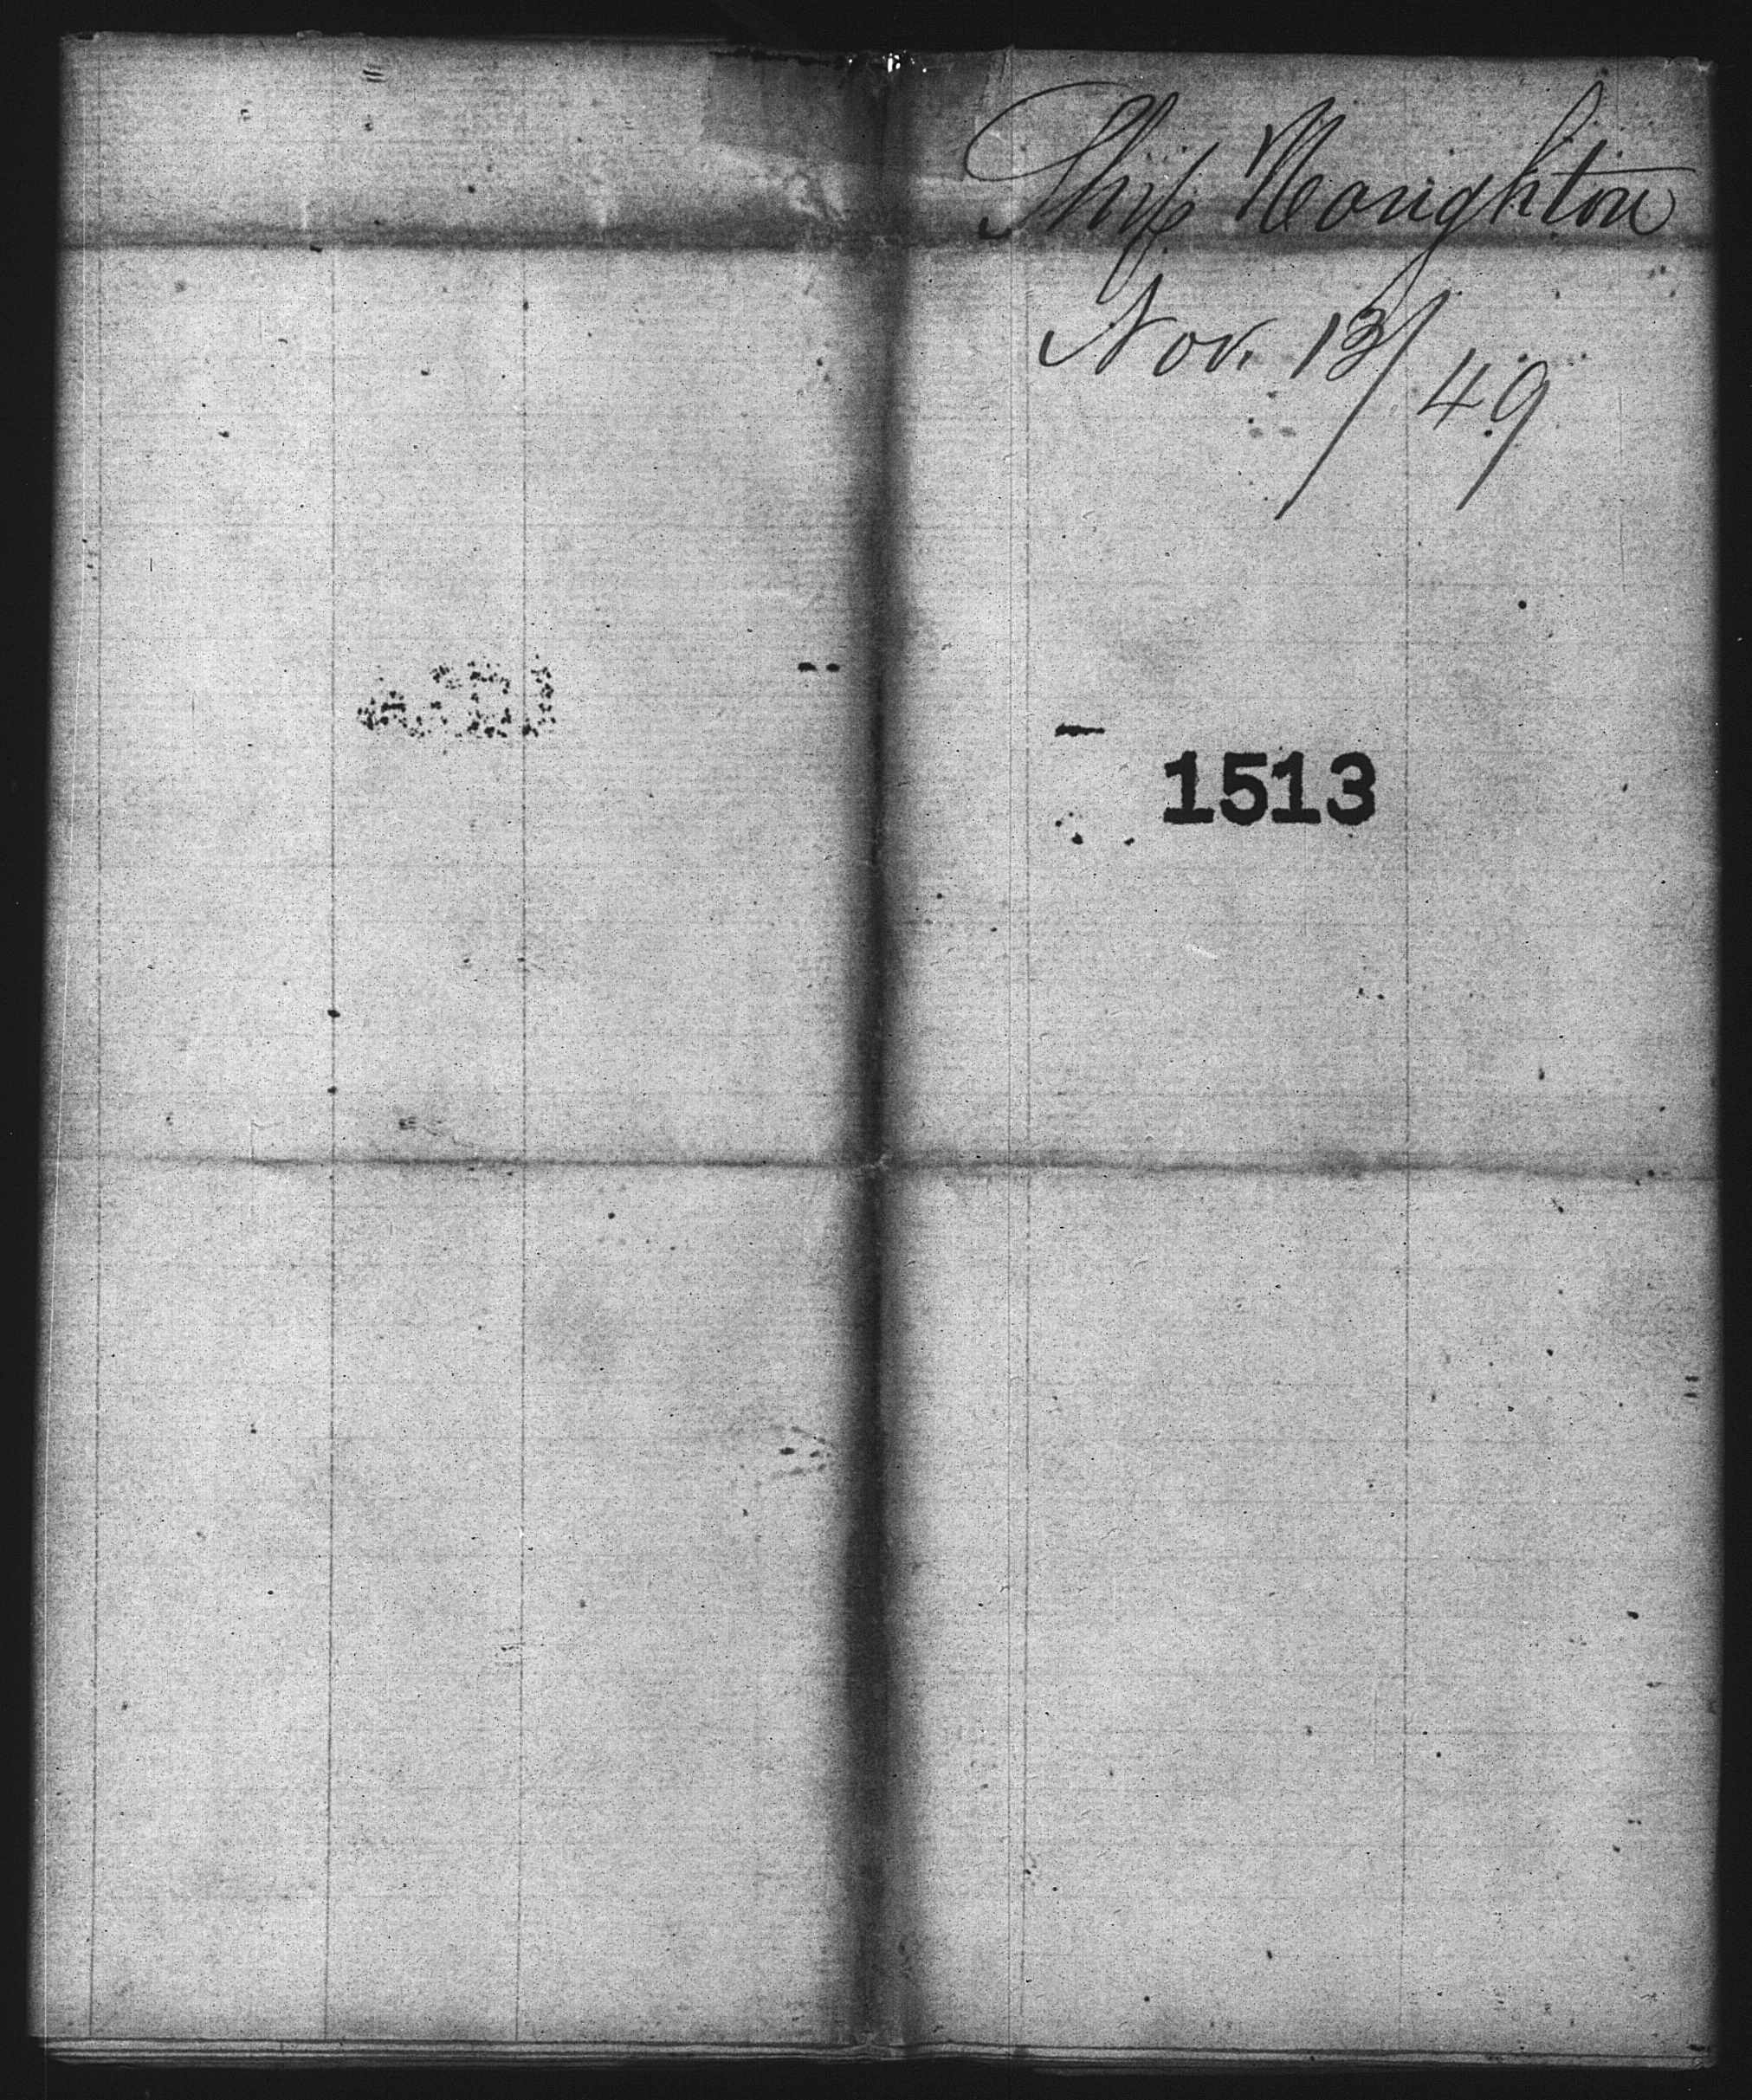 Ship Houghton
Nov. 13/49
1513